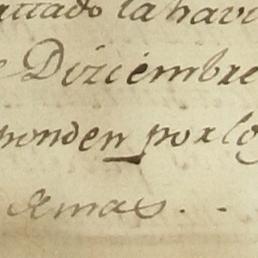 attado la havi
e Diziembre
ponden por lo
demas . .